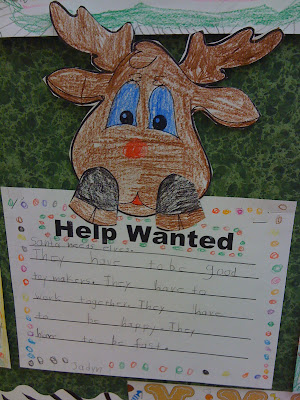 Help Wanted
santa needs elves.
They have to be good
toy makers. They have to
work together. They have
to be happy. They
have to be fast.